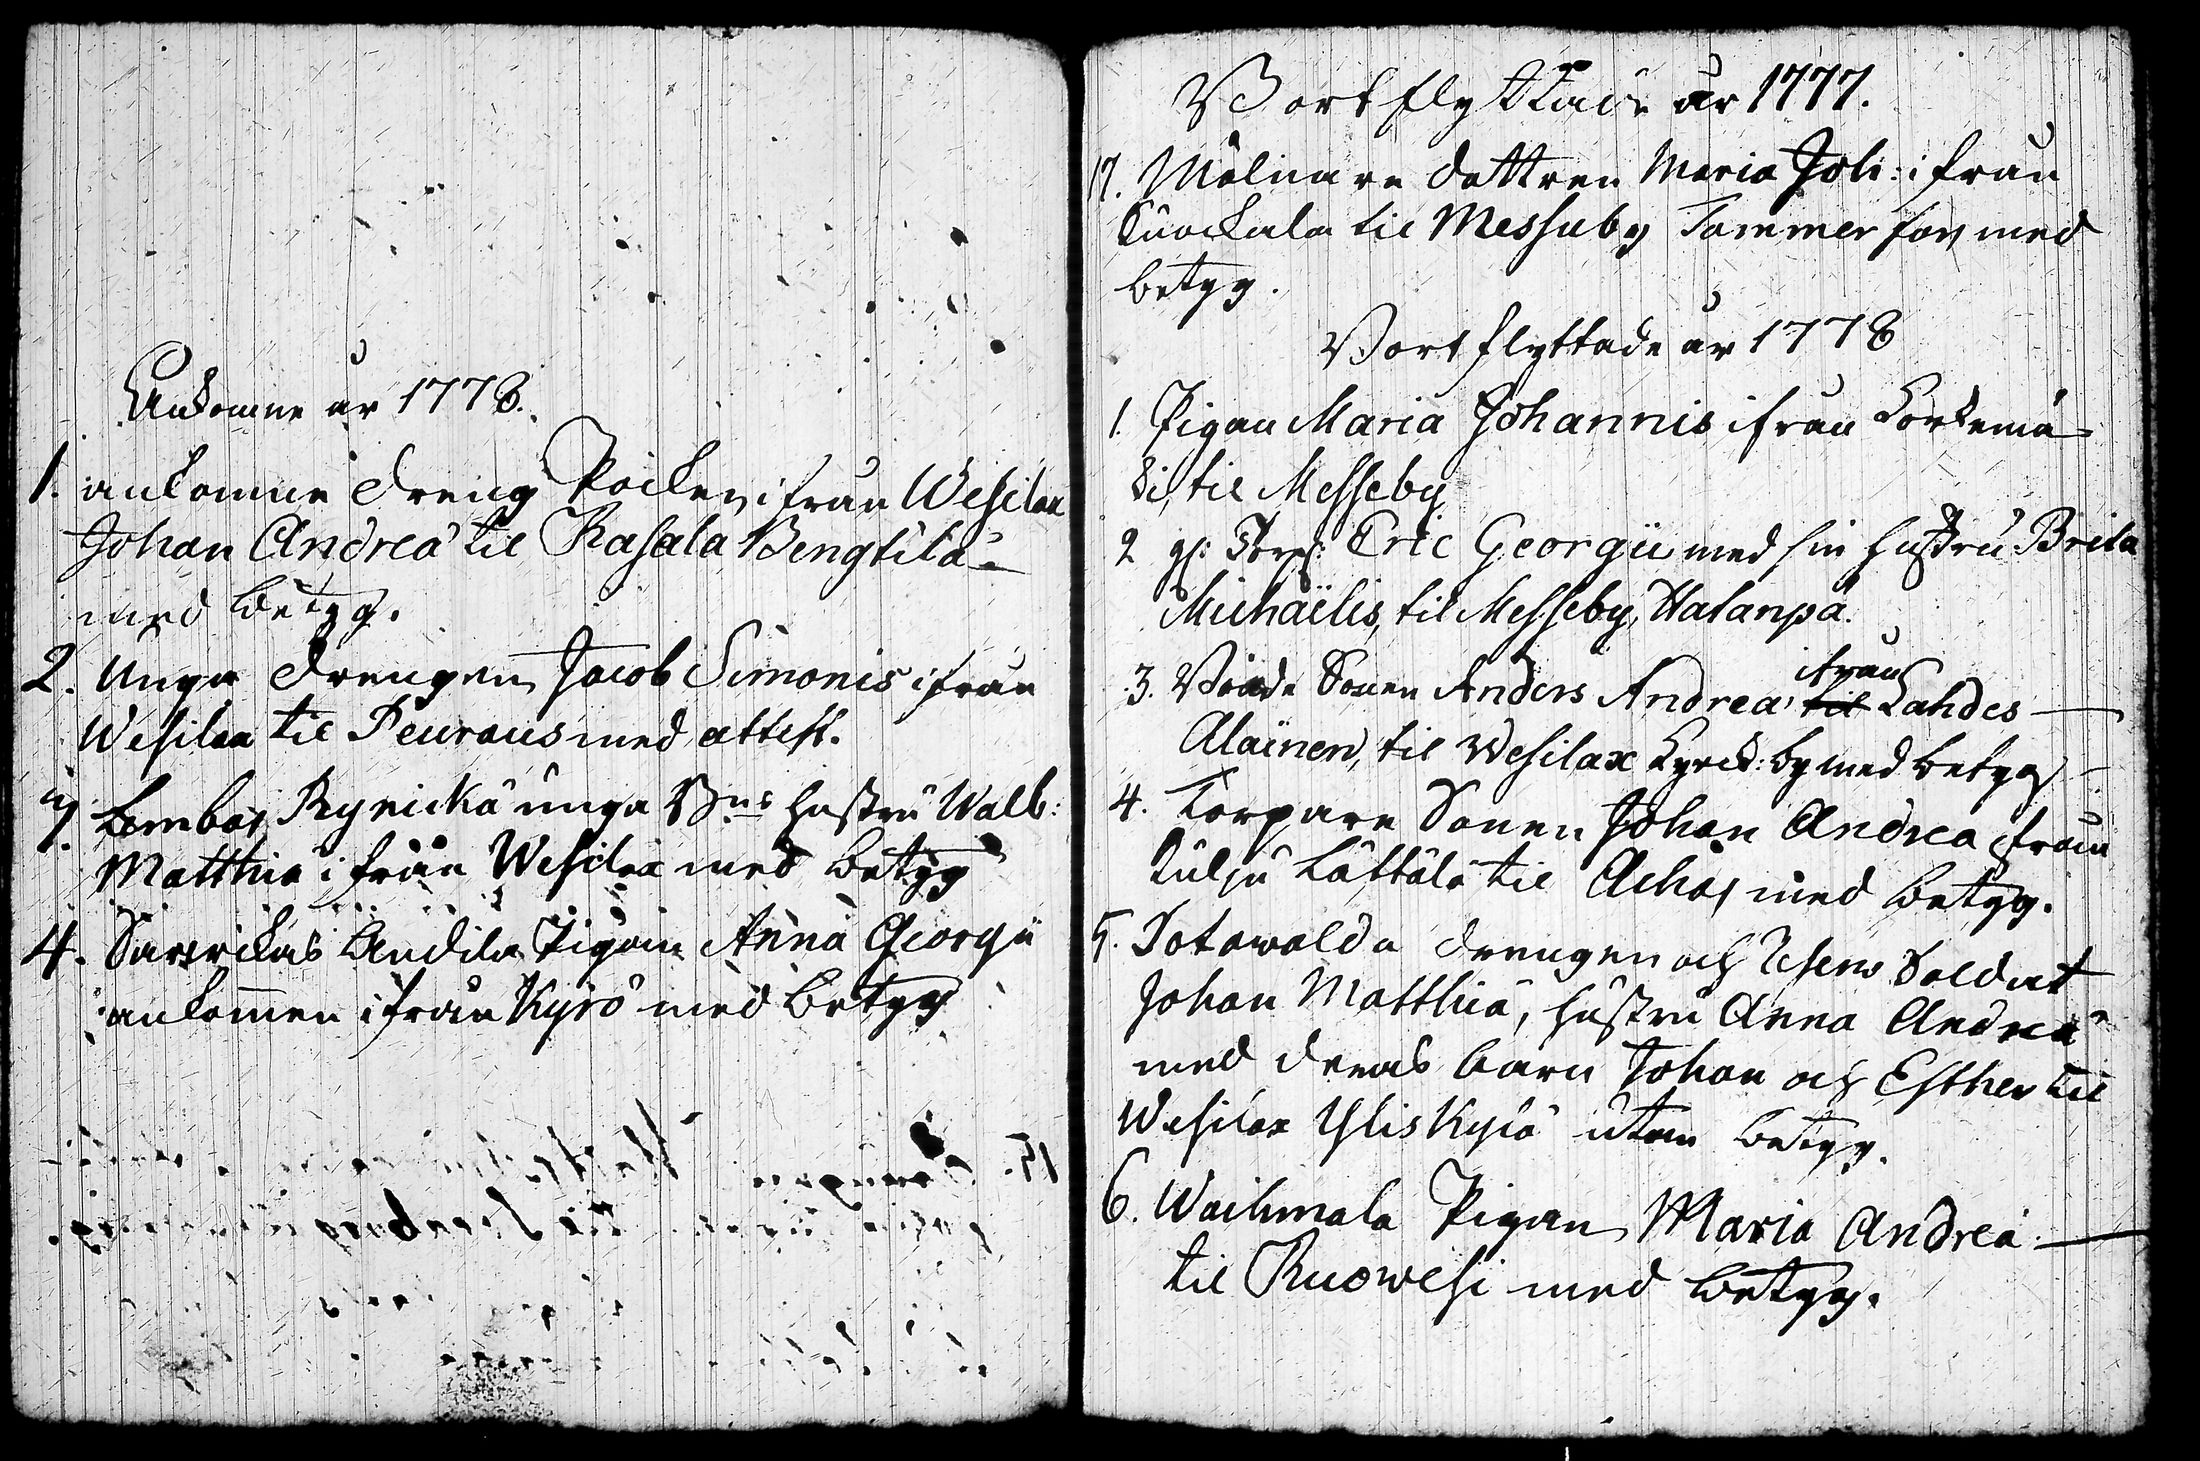 Ankomne år 1778.
1. ankomne Dreng Poiken ifrån Wesilax
Johan Andreæ til Rasala Bengtilä
med betyg.
2. Unga Drengen Jacob Simonis ifrån
Wesilax til Peuraus med attest.
3. Lembois Ryrickä unga Bns hustru Walb:
Matthiæ ifrån Wesilax med betyg
4. Anndila Pigan Anna Georgii
ankommen ifrån Kyrö med betyg
Bortflyttade år 1777.
17. Molnare dottren Maria Joh: ifrån
Kuockala til Messuby Tammerfors med
betyg.
Bortflyttade år 1778
1. Pigan Maria Johannis ifrån Korkemä
ki, til Messeby
2 Eric Georgii med sin hustru Brita
Michaëlis, til Messeby, Hatanpä.
3. Bonde Sonen Anders Andreæ til ifrån Lahdes
Alainen, til Wesilax Kyrck: by med betyg
4. Torpare Sonen Johan Andreæ ifrån
Kulju Lättälä til Achas med betyg.
5. Sotawalda drengen och Soldat
Johan Matthiæ, hustru Anna Andreæ
med deras barn Johan och Esther til
Wesilax Ylis Kylä utan betyg.
6. Waihmala Pigan Maria Andreæ
til Ruowesi med betyg.